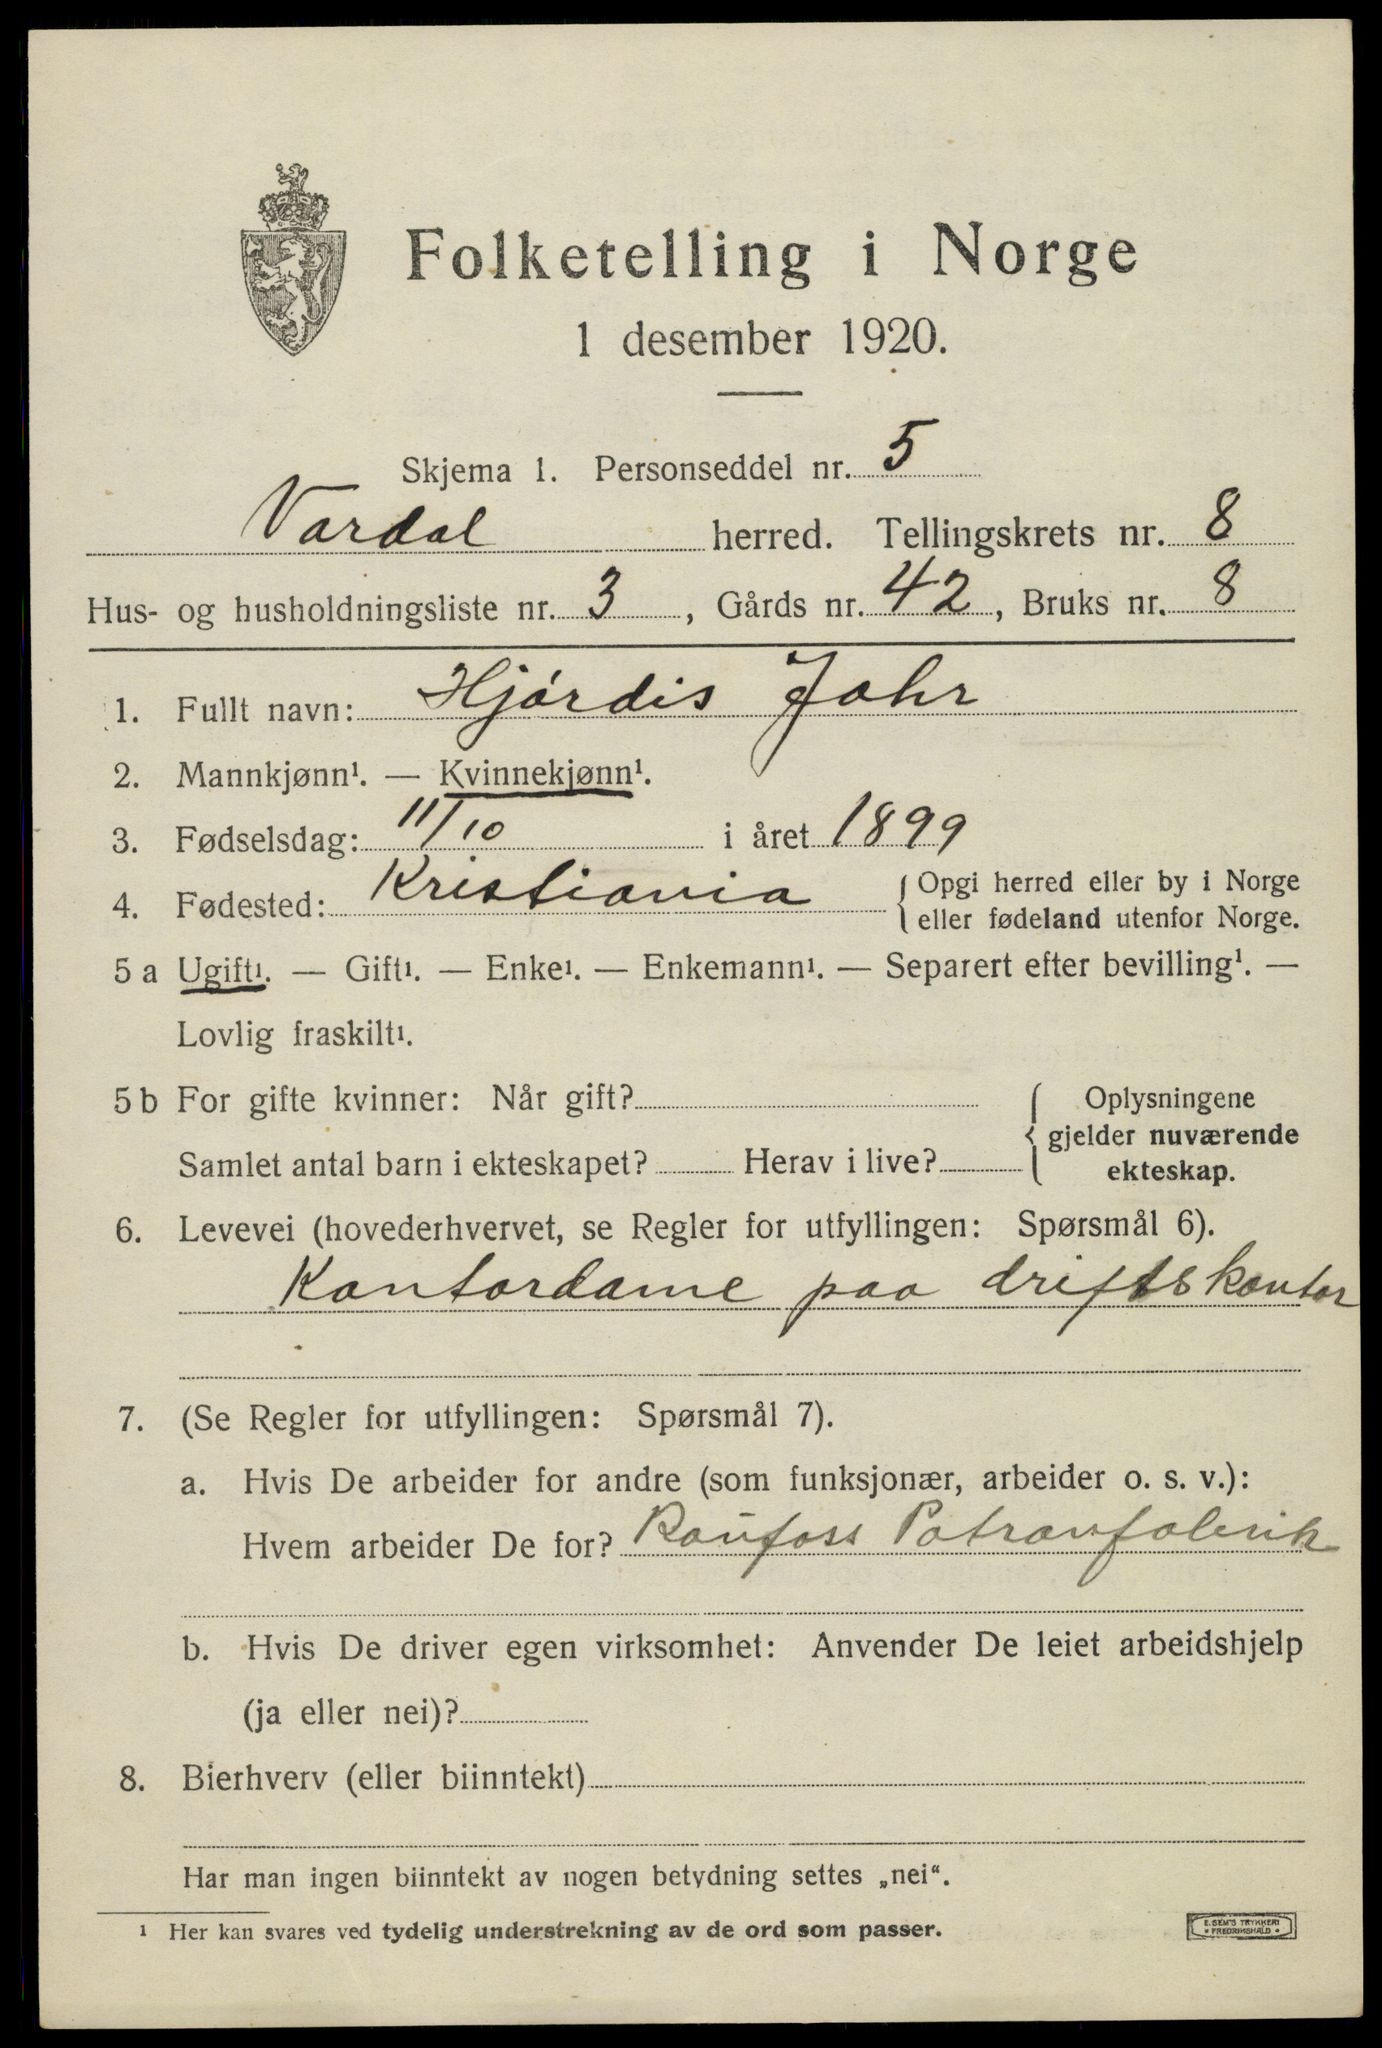 Folketelling i Norge
1 desember 1920.
Skjema 1. Personseddel nr. 5
Vardal herred. Tellingskrets nr. 8
Hus- og husholdningsliste nr. 3, Gårds nr. 42, Bruks nr. 8
1. Fullt navn: Hjórdis Johr
2. Mannkjønn¹. — Kvinnekjønn¹.
3. Fødselsdag: 11/10 i året 1899
4. Fødested: Kristiania { Opgi herred eller by i Norge
eller fødeland utenfor Norge.
5 a Ugift¹. — Gift¹. — Enke¹. — Enkemann¹. — Separert efter bevilling¹. —
Lovlig fraskilt¹.
5 b For gifte kvinner: Når gift? { Oplysningene
gjelder nuværende
Samlet antal barn i ekteskapet? Herav i live? ekteskap.
6. Levevei (hovederhvervet, se Regler for utfyllingen: Spørsmål 6).
Kontordame paa driftskontor
7. (Se Regler for utfyllingen: Spørsmål 7).
a. Hvis De arbeider for andre (som funksjonær, arbeider o. s. v.):
Hvem arbeider De for? Raufoss Patronfabrik
b. Hvis De driver egen virksomhet: Anvender De leiet arbeidshjelp
(ja eller nei)?
8. Bierhverv (eller biinntekt)
Har man ingen biinntekt av nogen betydning settes „nei“.
¹ Her kan svares ved tydelig understrekning av de ord som passer.
E. SEM'S TRYKKERI
• FREDRIKSHALD •